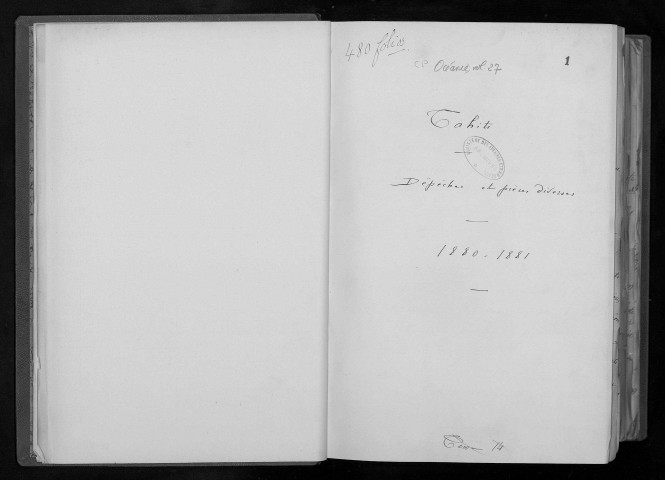 480 folios.
CP Océanie, vol 27
1
Tahiti
Dépêches et pièces diverses
1880-1881
Tome 14